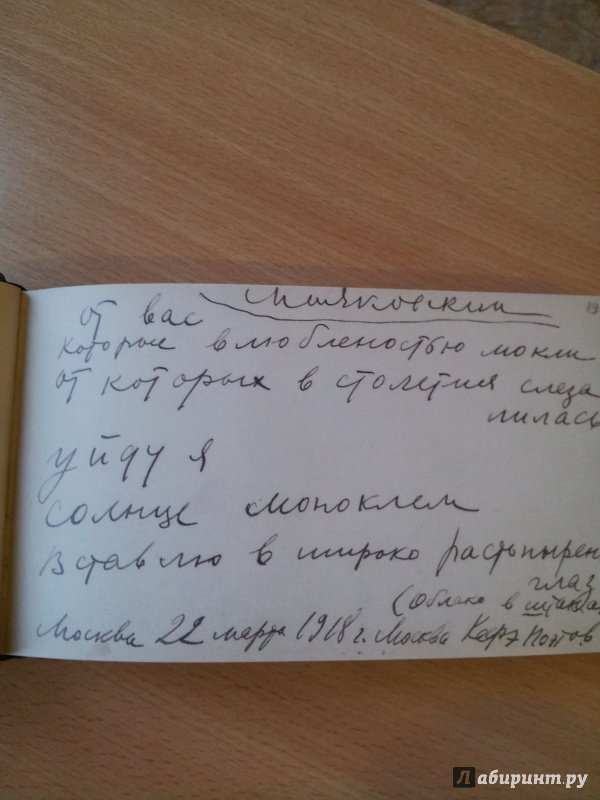 Маяковский
19
от вас
которые влюбленостью мокли
от которых в столетия слеза
лилась
уйду я
солнце моноклем
вставлю в широко растопырен
глаз
(Облако в штанах
Москва 22 марта 1918 г. Москва Кафэ Поэтов
Лабиринт.ру